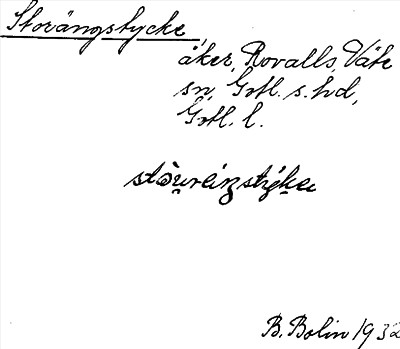 Storängstycke,
åker, Rovalls, Väte
sn, Gotl. s. hd,
Gotl. l.
B. Bolin 1932